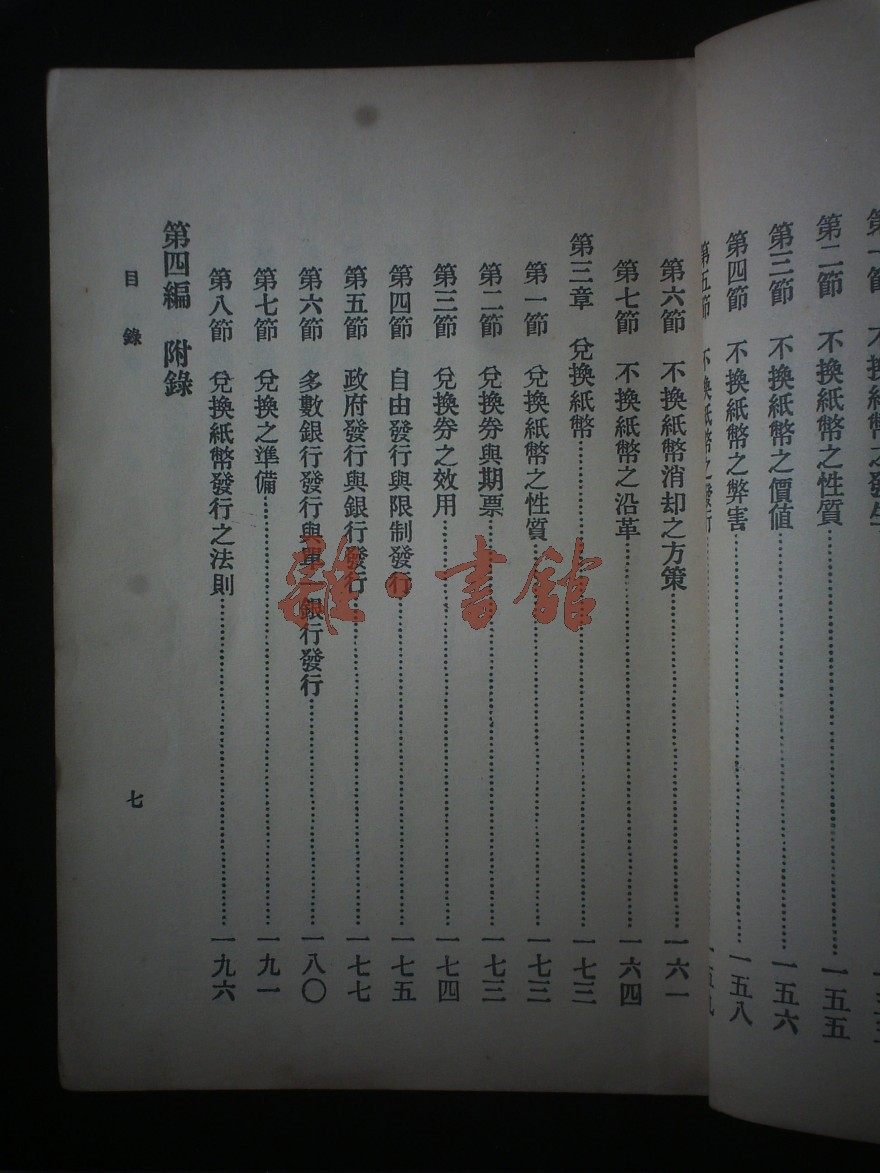 第二節　不換紙幣之性質……一五五
第三節　不換紙幣之價値……一五六
第四節　不換紙幣之弊害……一五八
第五節　不換紙幣之發行……一五九
第六節　不換紙幣消却之方策……一六一
第七節　不換紙幣之沿革……一六四
第三章　兌換紙幣……一七三
第一節　兌換紙幣之性質……一七三
第二節　兌換券與期票……一七三
第三節　兌換券之效用……一七四
第四節　自由發行與限制發行……一七五
第五節　政府發行與銀行發行……一七七
第六節　多數銀行發行與單一銀行發行……一八〇
第七節　兌換之準備……一九一
第八節　兌換紙幣發行之法則……一九六
第四編　附錄
目錄
七
雜·書館